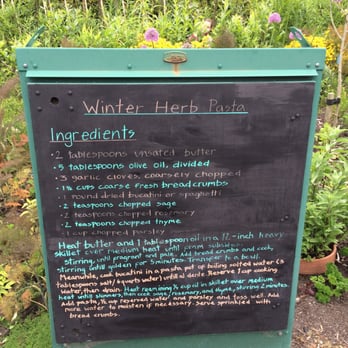 Winter Herb Pasta
Ingredients
• 2 tablespoons unsated butter
• 5 tablespoons olive oil, divided
• 3 garlic cloves, coarsely chopped
• 1½ cups coarse fresh breadcrumbs
• 1 pound dried bucatini or spaghetti
• 2 teaspoons chopped sage
• 2 teaspoons chopped rosemary
• 2 teaspoons chopped thyme
• 1 cup chopped parsley
Heat butter and 1 tablespoon oil in a 12-inch heavy
skillet over medium heat until foam subsides.
stirring, until fragrant and pale. Add bread crumbs and cook,
stirring until golden for 5 minutes. Transfer to a bowl.
Meanwhile, cook bucatini in a pasta pot of boiling salted water (3
tablespoons salt/6 quarts water) until al dente. Reserve 1 cup cooking
water, then drain. Heat remaining ¼ cup oil in skillet over medium
heat until shimmers, then cook sage, rosemary, and thyme, stirring 2 minutes.
Add pasta, ½ cup reserved water and parsley and toss well. Add
more water to moisten if necessary. Serve sprinkled with
bread crumbs.